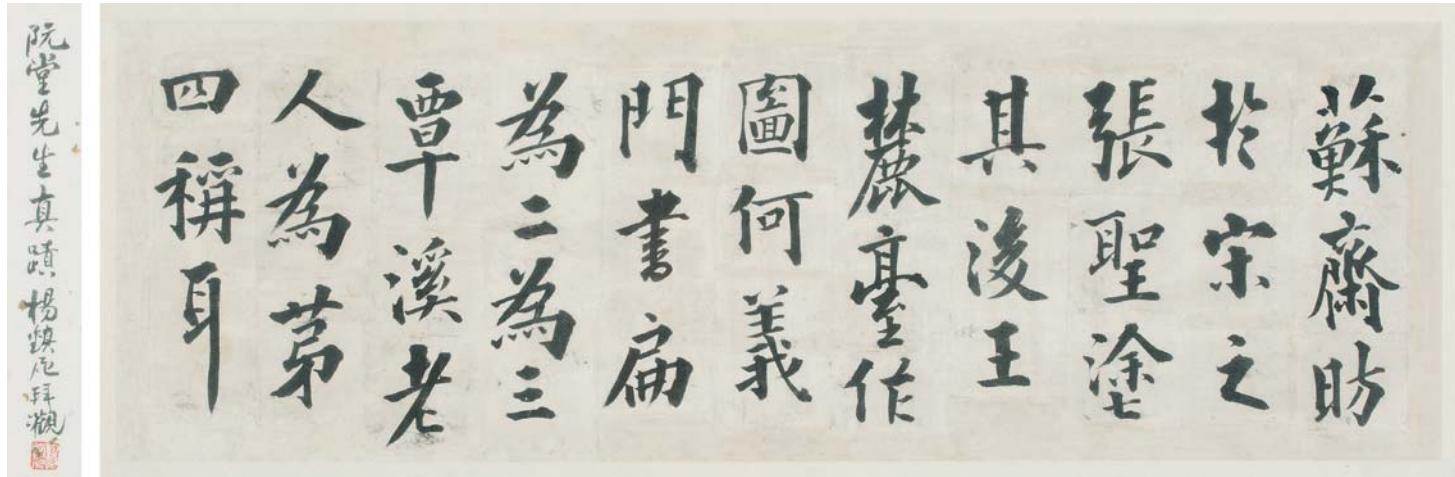 蘇齋昉
於宋之
張聖塗
其後王
麓臺作
圖何義
門書扁
為二為三
覃溪老
人為苐
四稱耳
阮堂先生真蹟 楊鎮拜觀